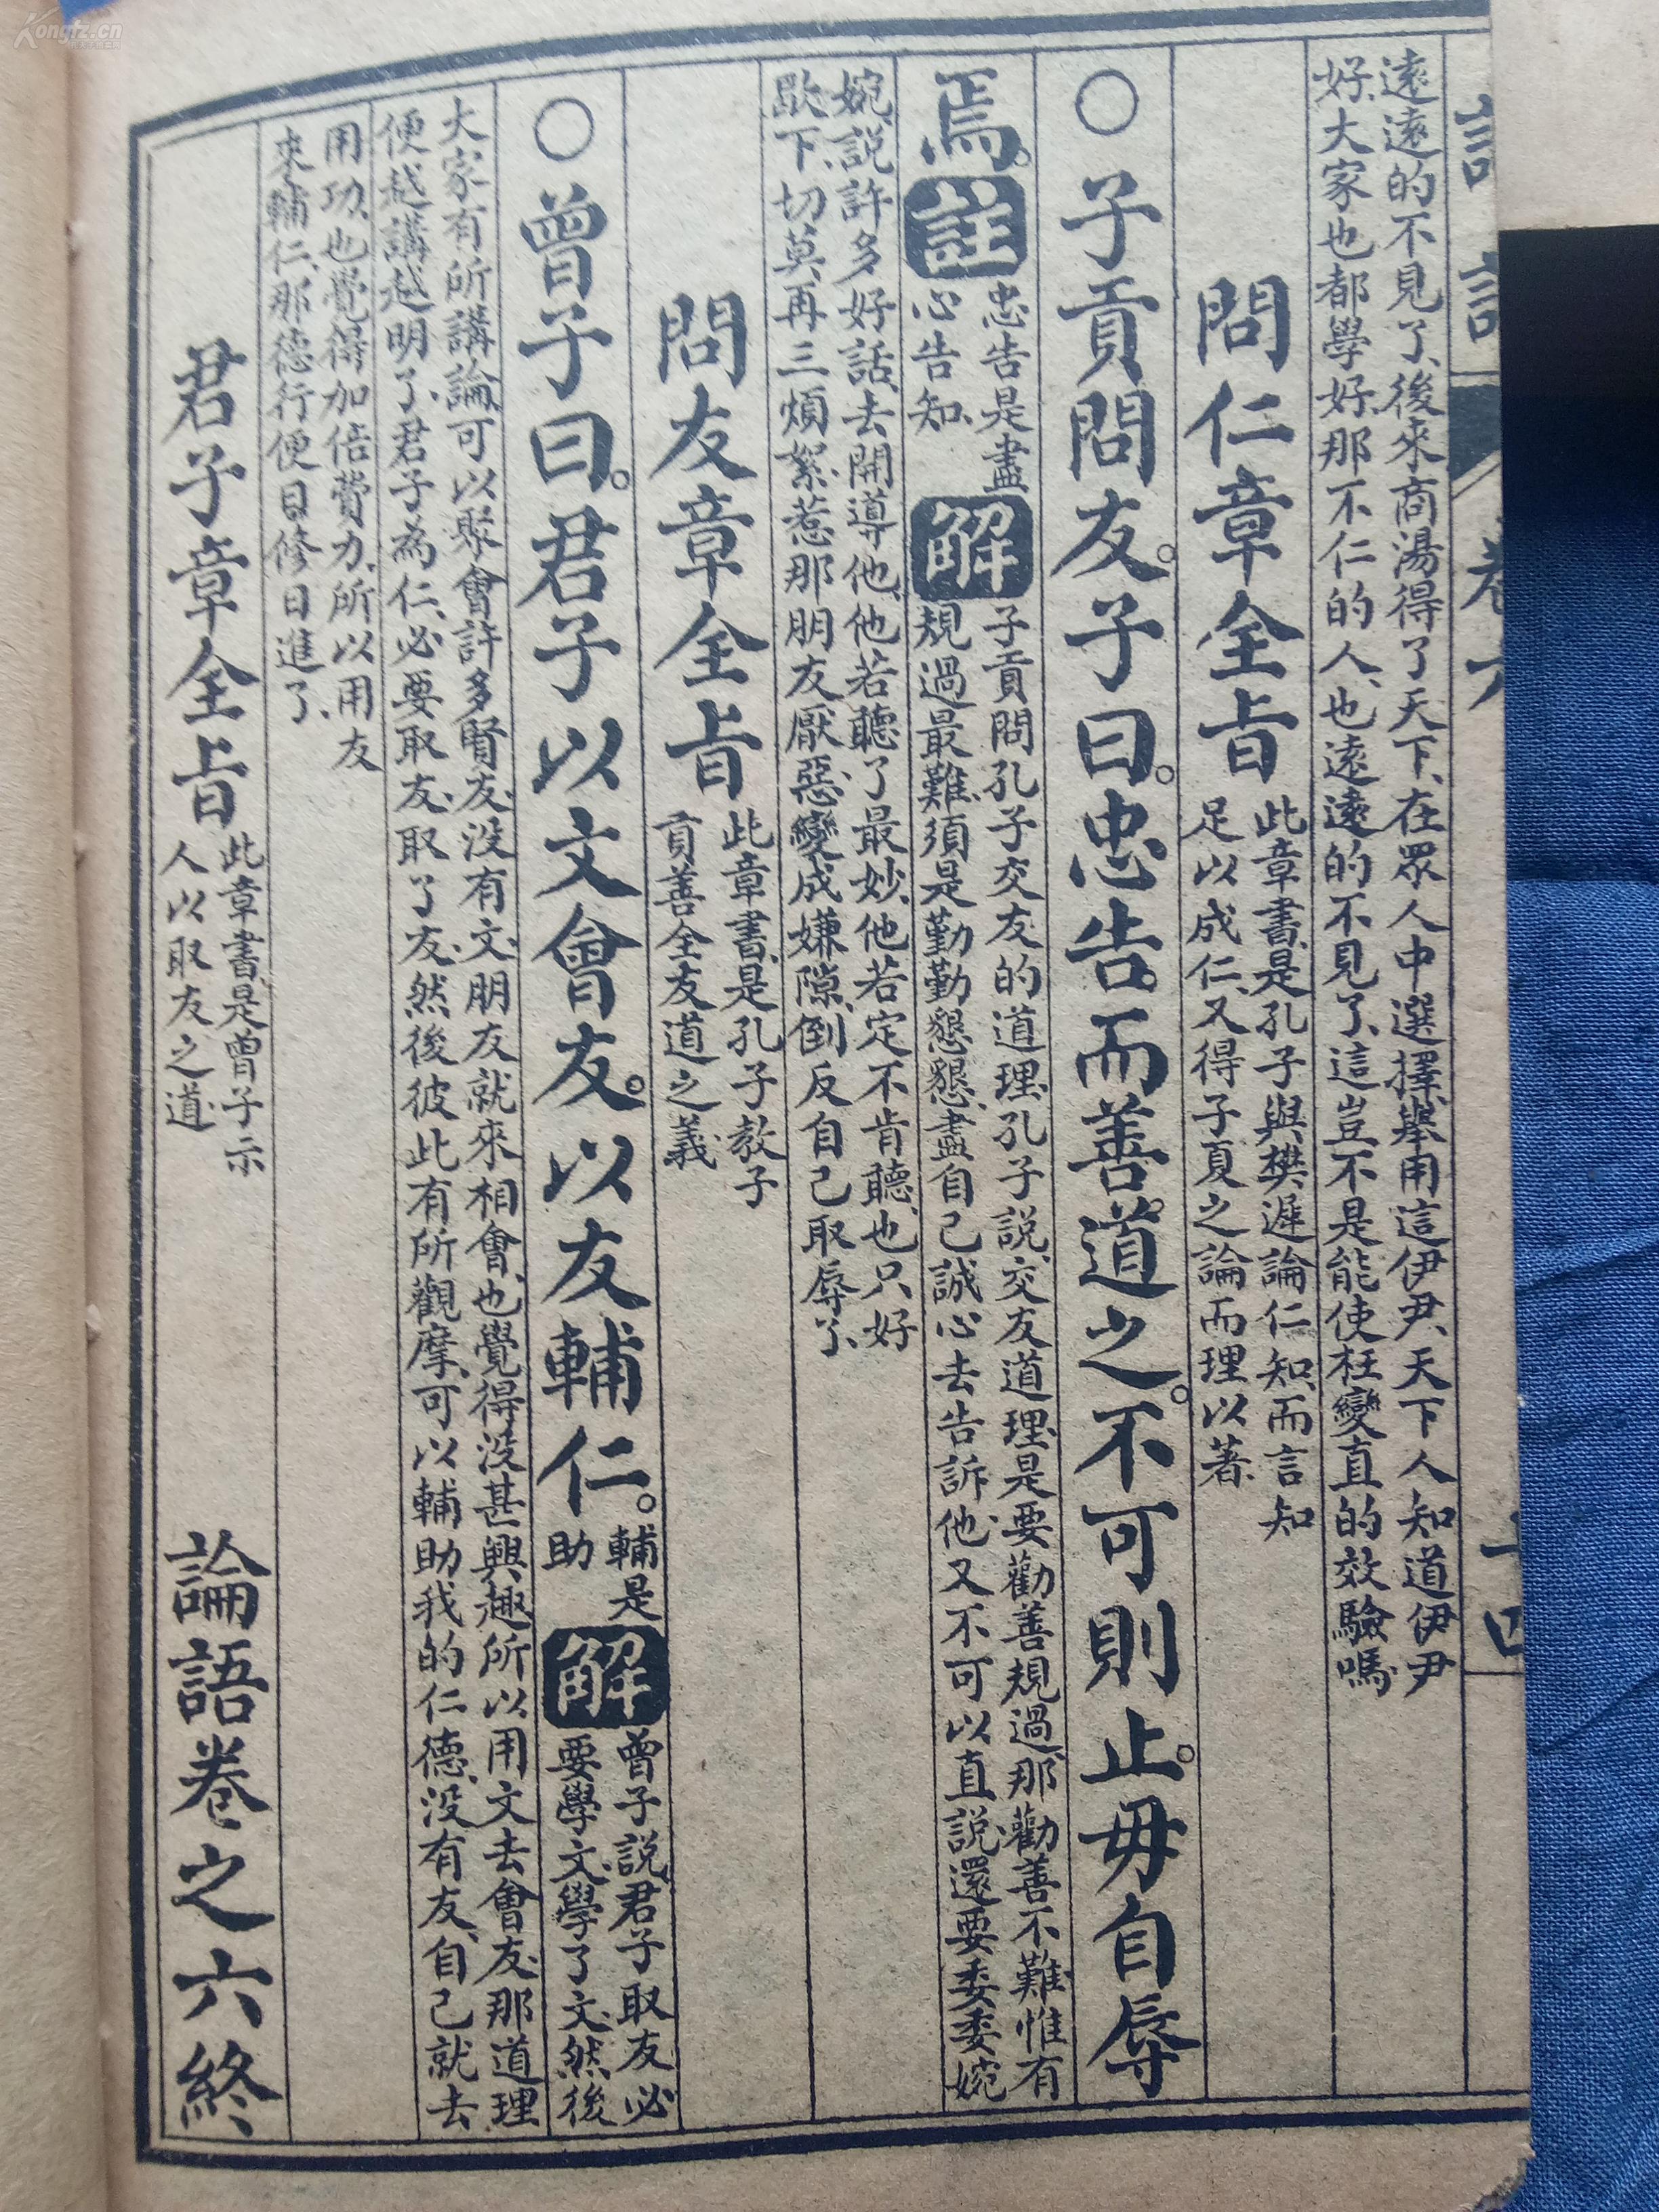 遠遠的不見了、後來商湯得了天下、在眾人中選擇、舉用這伊尹、天下人知道伊尹
好、大家也都學好、那不仁的人、也遠遠的不見了、這豈不是能使枉變直的效驗嗎
問仁章全旨
此章書、是孔子與樊遲論仁知、而言知
足以成仁、又得子夏之論而理以著、
○子貢問友。子曰。忠告而善道之。不可則止。毋自辱
焉。註
忠告是盡
心告知、
解
子貢問孔子交友的道理、孔子說、交友道理、是要勸善規過、那勸善不難、惟有
規過最難、須是勤勤懇懇、盡自己誠心去告訴他、又不可以直說、還要委委婉
婉、說許多好話、去開導他、他若聽了最妙、他若定不肯聽、也只好
歇下、切莫再三煩絮、惹那朋友厭惡、變成嫌隙、倒反自己取辱了、
問友章全旨
此章書、是孔子教子
貢善全友道之義
○曾子曰。君子以文會友。以友輔仁。
輔是
助
解
曾子說、君子取友、必
要學文、學了文、然後
大家有所講論、可以聚會許多賢友、没有文、朋友就來相會、也覺得没甚興趣、所以用文去會友、那道理
便越講越明了、君子為仁、必要取友、取了友、然後彼此有所觀摩、可以輔助我的仁德、没有友、自己就去
用功、也覺得加倍費力、所以用友
來輔仁、那德行便日修日進了、
君子章全旨
此章書、是曾子示
人以取友之道、
論語卷之六終
Kongfz.cn